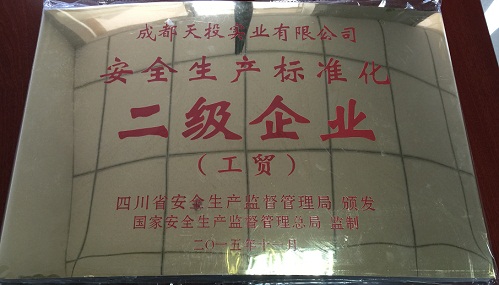 成都天投实业有限公司
安全生产标准化
二级企业
（工贸）
四川省安全生产监督管理局 颁发
国家安全生产监督管理总局 监制
二〇一五年十一月